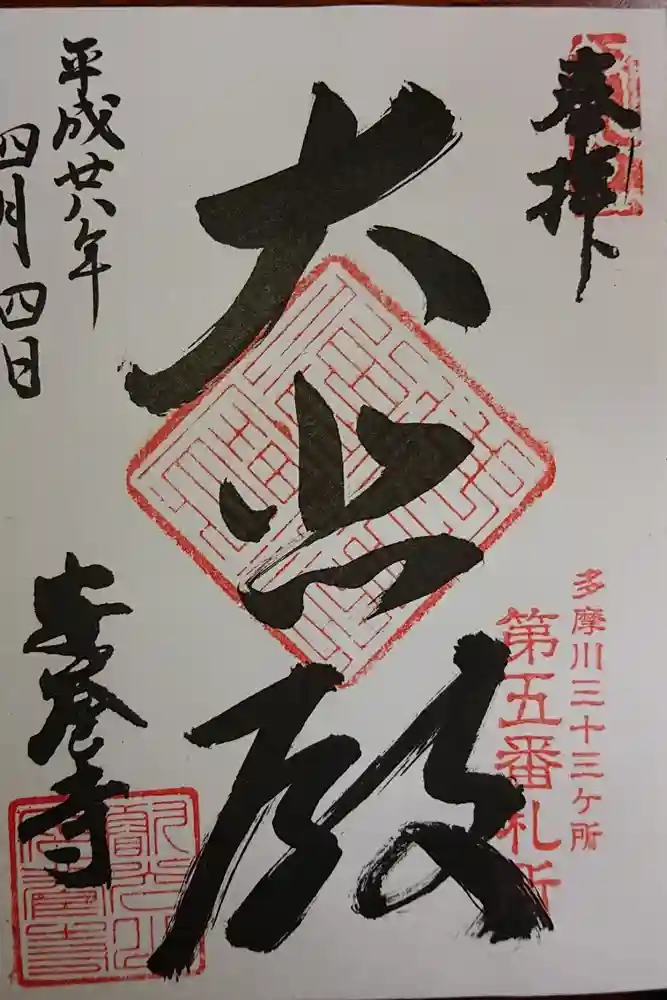 奉拝
多摩川三十三ケ所
第五番札所
大悲殿
平成廿八年
四月四日
安養寺